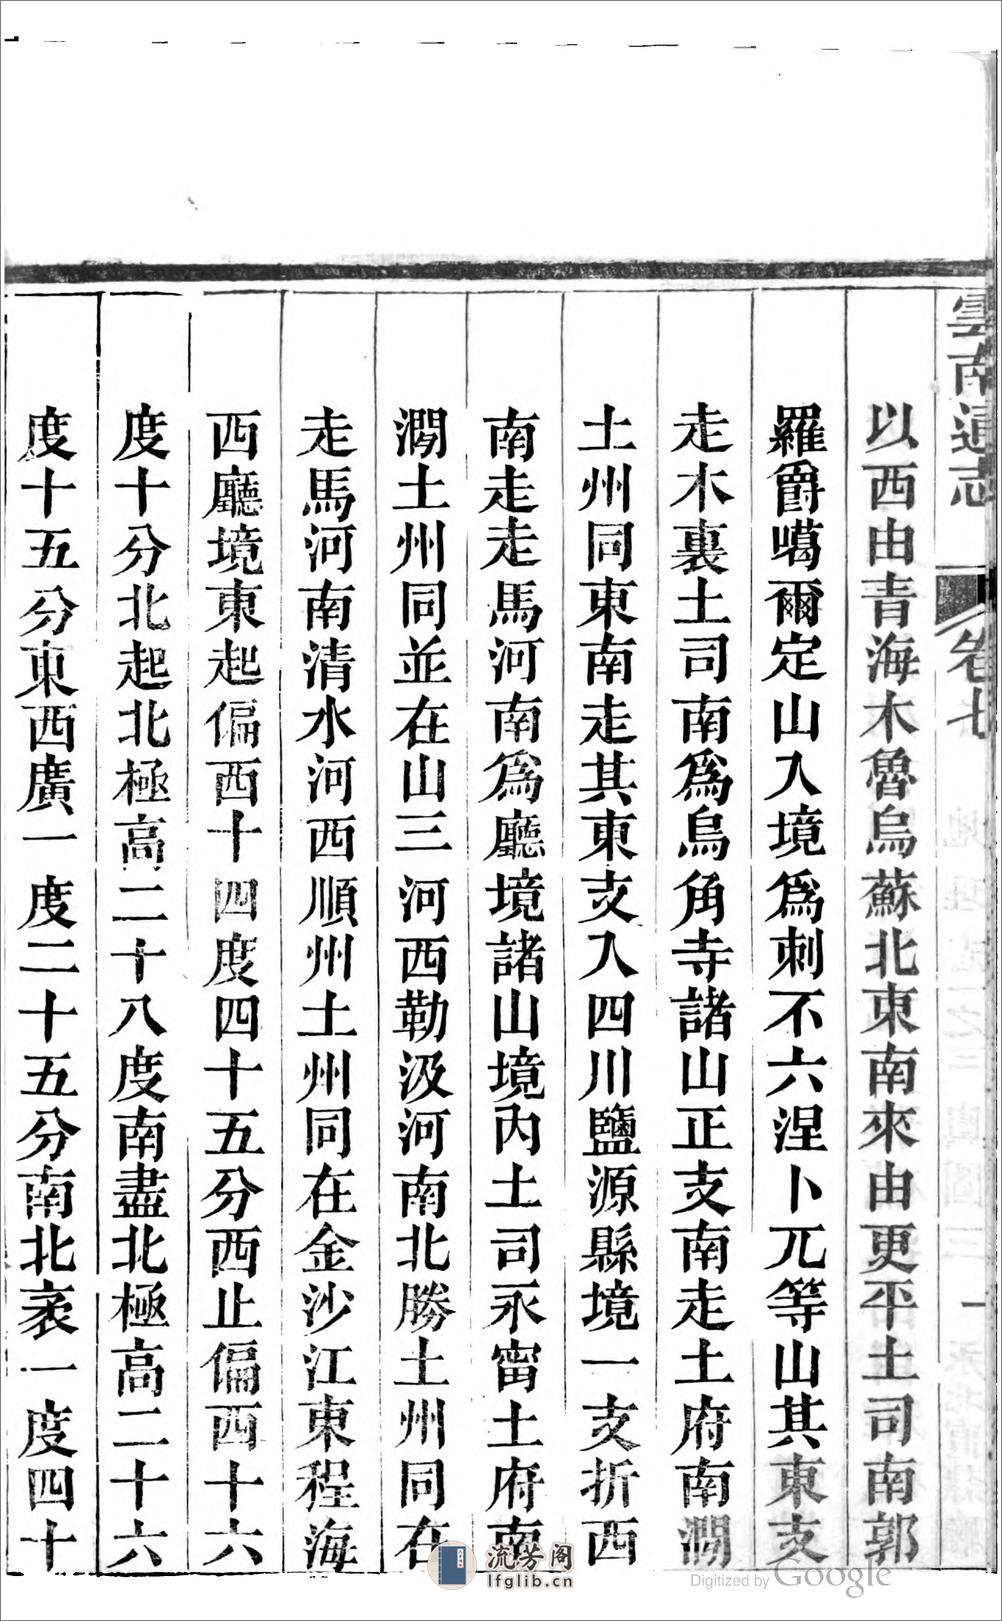 雲南通志 卷七
以西由青海木魯烏蘇北東南來由更平土司南郭
羅爵噶爾定山入境爲刺不六涅卜兀等山其東支
走木裏土司南爲烏角寺諸山正支南走土府南澗
土州同東南走其東支入四川鹽源縣境一支折西
南走走馬河南爲廳境諸山境內土司永甯土府南
澗土州同並在山三河西勒汲河南北勝土州同在
走馬河南清水河西順州土州同在金沙江東程海
西廳境東起偏西十四度四十五分西止偏西十六
度十分北起北極高二十八度南盡北極高二十六
度十五分東西廣一度二十五分南北袤一度四十
流芳阁
lfglib.cn
Digitized by Google